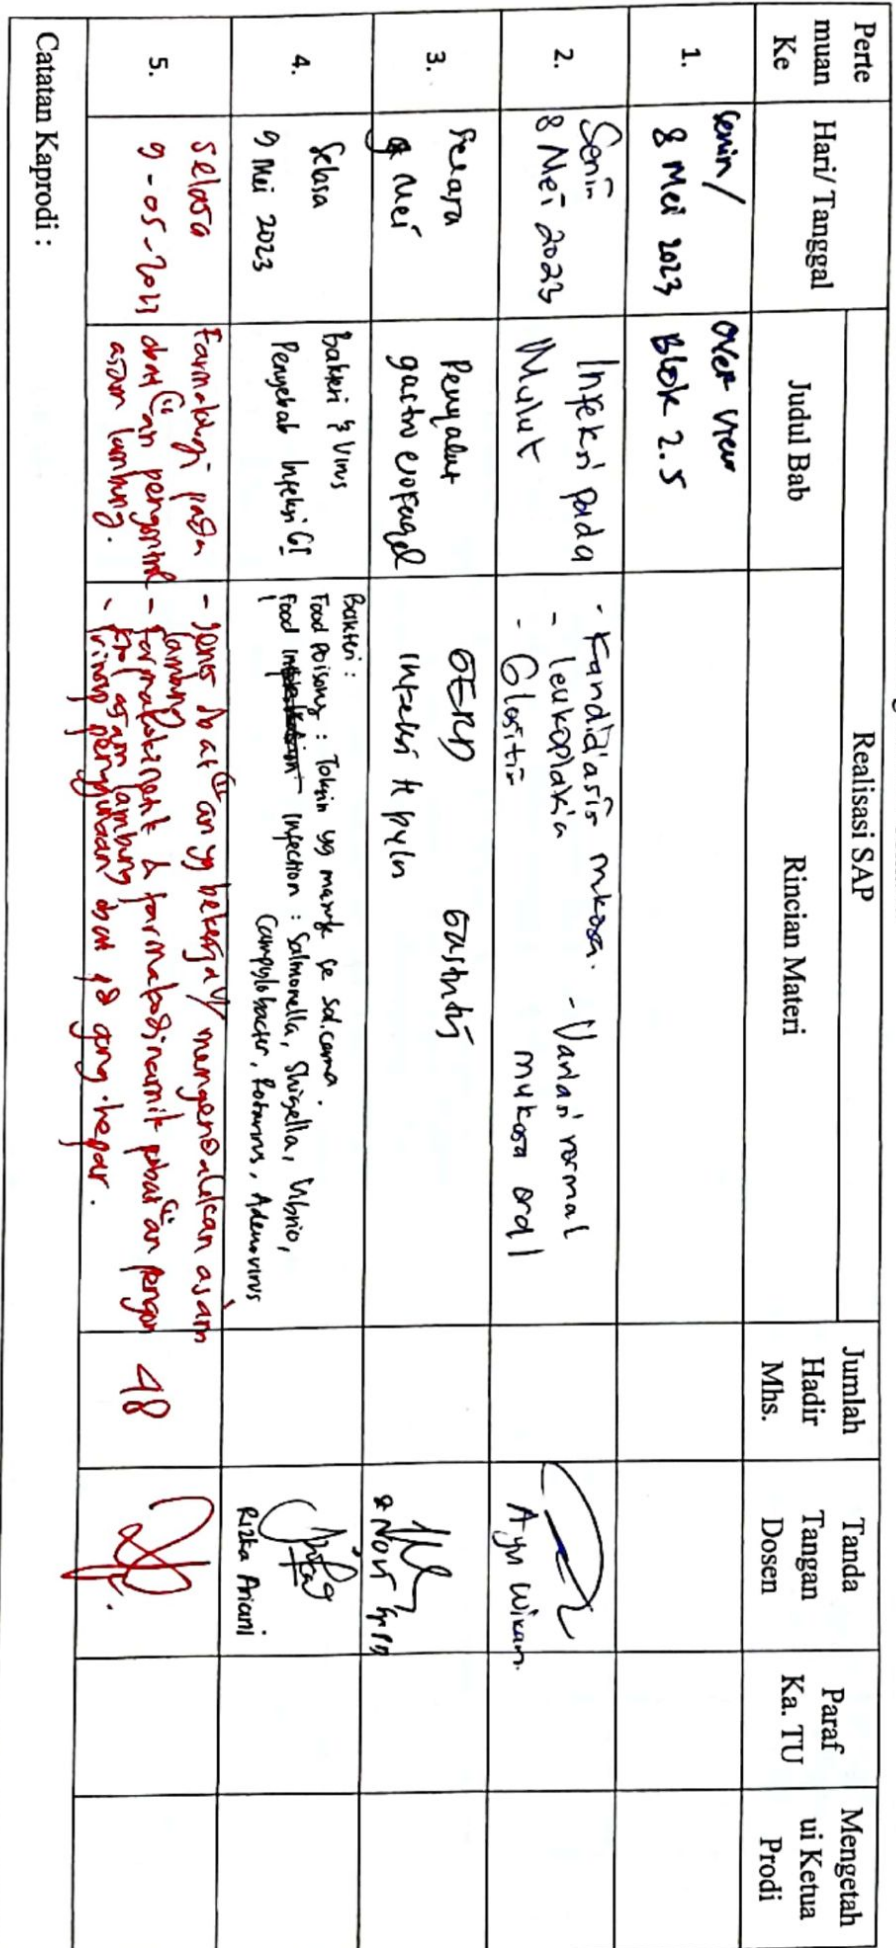 Perte
muan
Ke
Hari/ Tanggal
Realisasi SAP
Judul Bab
Rincian Materi
Jumlah
Hadir
Mhs.
Tanda
Tangan
Dosen
Paraf
Ka. TU
Mengetah
ui Ketua
Prodi
1.
Senin/
8 Mei 2023
Over view
Blok 2.5
2.
Senin
8 Mei 2023
Infeksi pada
Mulut
- Kandidiasis mukosa.
- leukoplakia
- Glositis
- Variasi normal
mukosa oral
3.
Selasa
9 Mei
Penyakit
gastroerofagel
GERD
Gastritis
infeksi H pylri
4.
Selasa
9 Mei 2023
Bakteri & Virus
Penyebab Infeksi GI
Bakteri :
Food Poisong : Toksin yg masuk ke sal.cerna.
Food infection : Salmonella, Shigella, Vibrio,
Campylobacter, Rotavirus, Adenovirus
5.
Selasa
9-05-2023
Farmakologi pada
obat"an pengontrol
asam lambung.
- Jenis obat"an yg bekerja u/ mengendalikan asam
lambung
- farmakokinetik & farmakodinamik obat"an pengon
trol asam lambung
- Prinsip penggunaan obat pd gang. hepar.
48
Ayu Wikan
Novi SpPD
Rizka Ariani
Catatan Kaprodi :